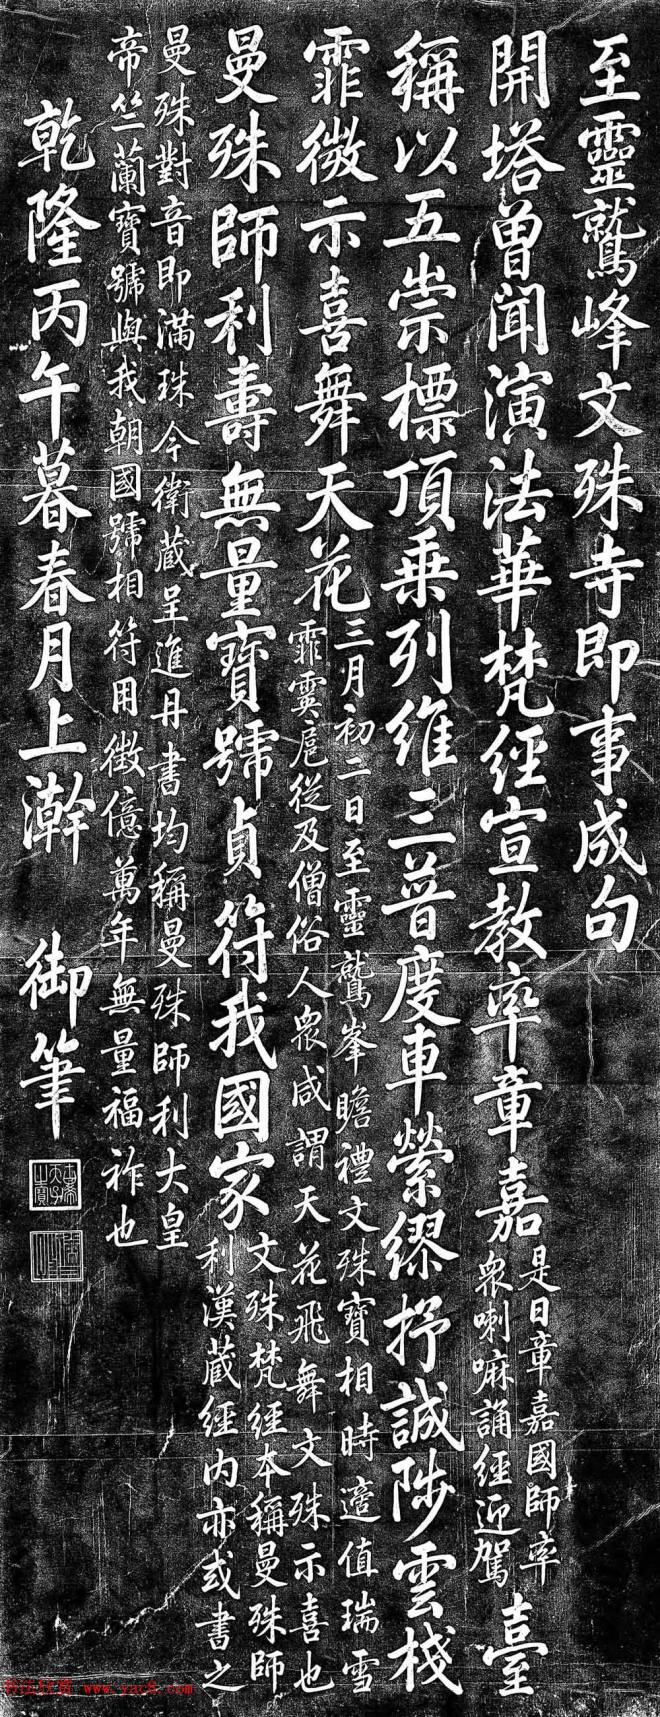 至靈鷲峰文殊寺即事成句
開塔曾聞演法華梵經宣教率章嘉是日章嘉國師率衆喇嘛誦經迎駕臺
稱以五崇標頂乘列維三普度車縈繆抒誠陟雲棧
霏微示喜舞天花三月初二日至靈鷲峯瞻禮文殊寶相時適值瑞雪霏霙扈從及僧俗人衆咸謂天花飛舞文殊示喜也
曼殊師利壽無量寶號貞符我國家文殊梵經本稱曼殊師利漢藏經内亦或書之
曼殊對音即滿珠今衛藏呈進丹書均稱曼殊師利大皇
帝竺蘭寶號與我朝國號相符用徵億萬年無量福祚也
乾隆丙午暮春月上澣 御筆
www.yac8.com